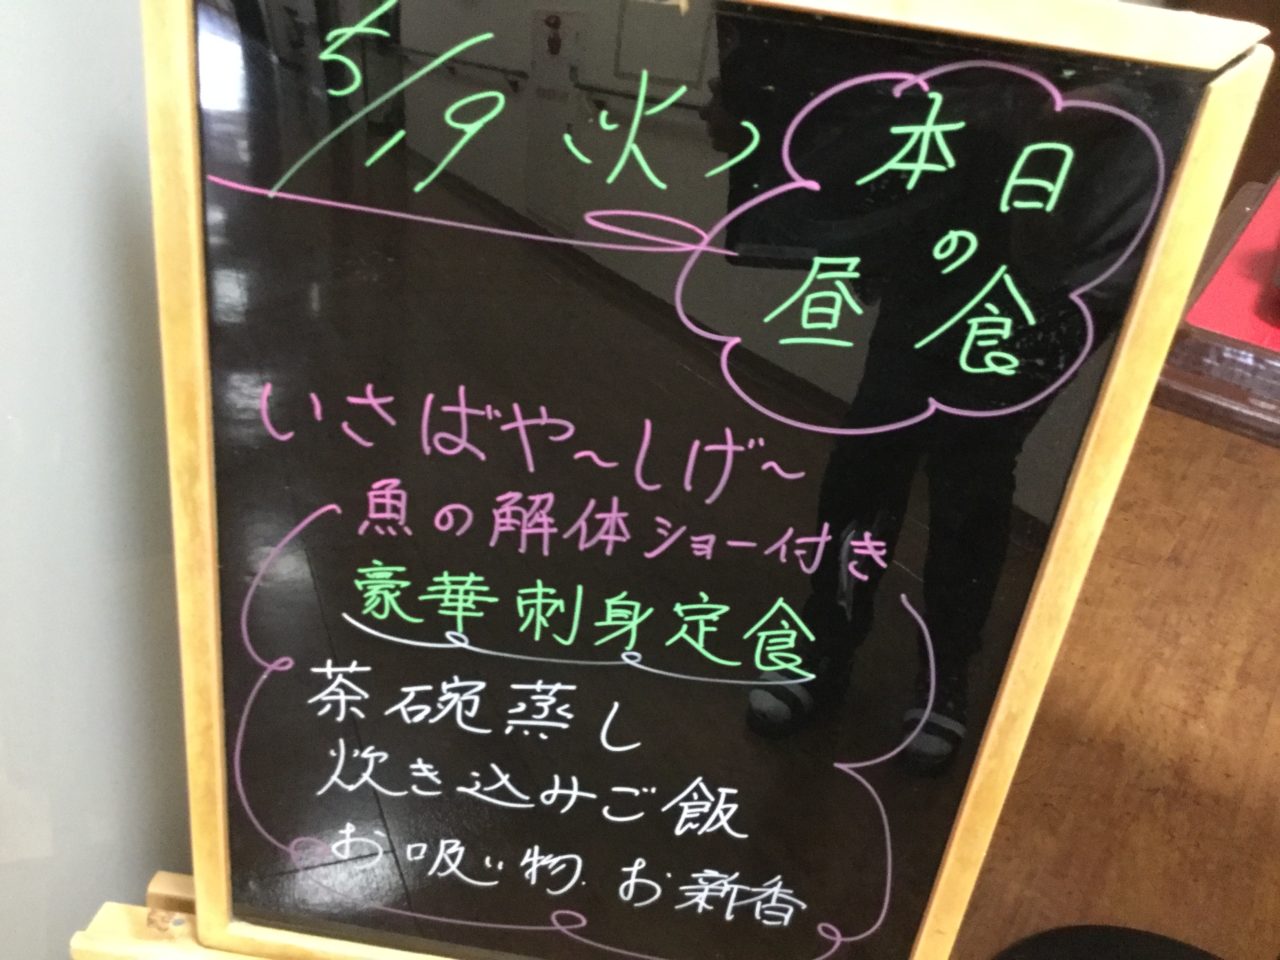 5/19(火)
本日
の
昼食
いさばや〜しげ〜
魚の解体ショー付き
豪華刺身定食
茶碗蒸し
炊き込みご飯
お吸い物.お新香